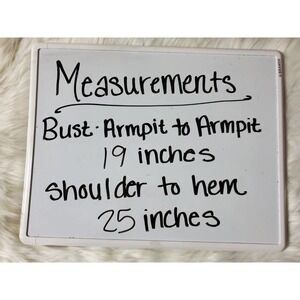 Measurements
Bust · Armpit to Armpit
19 inches
shoulder to hem
25 inches